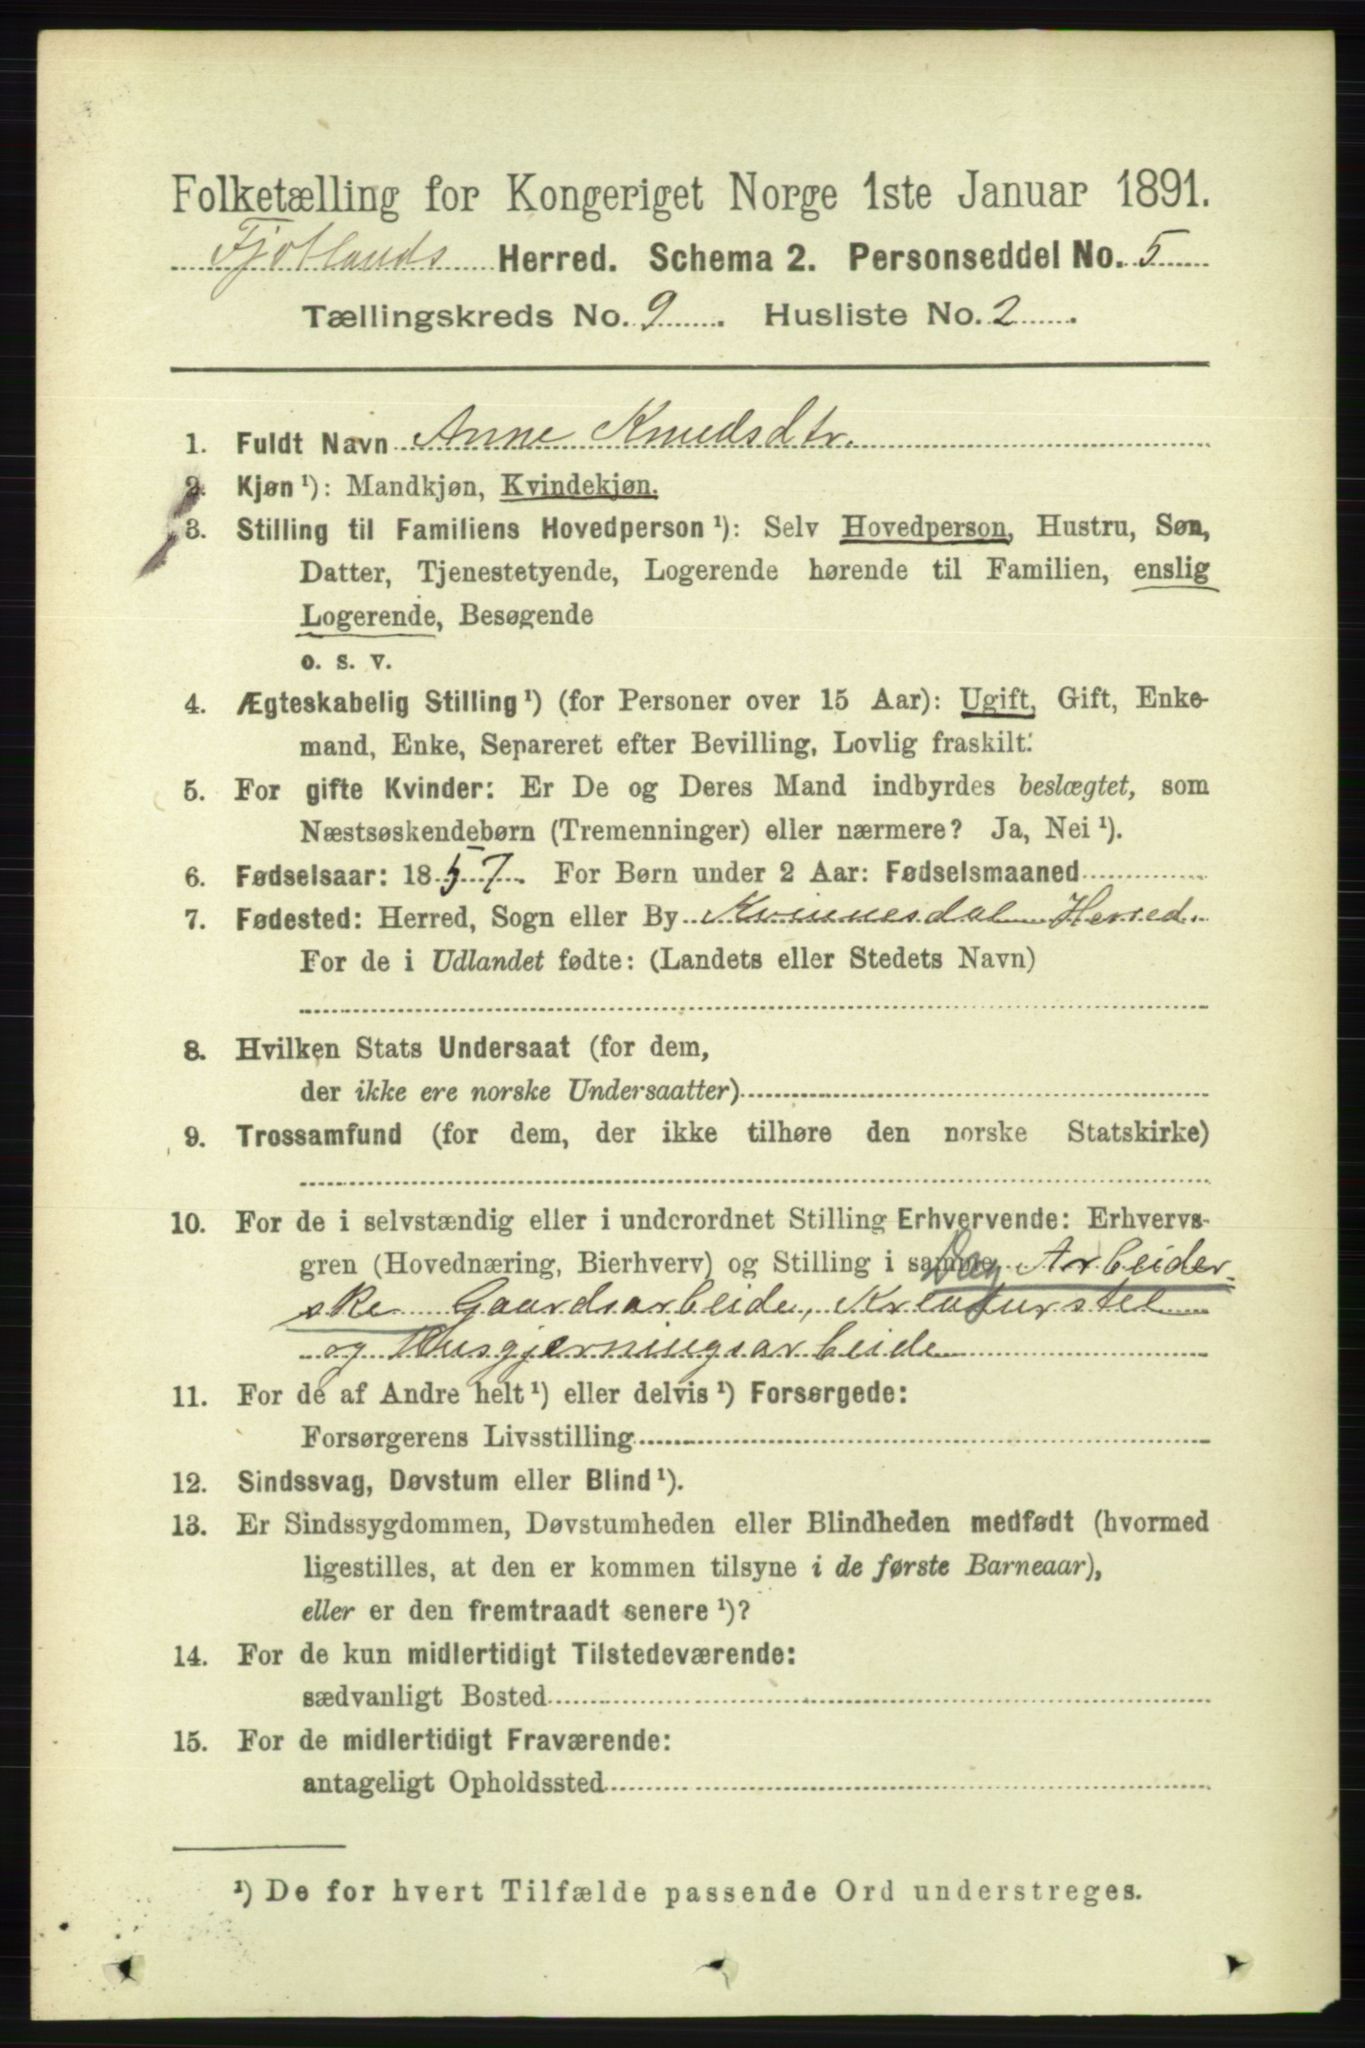 Folketælling for Kongeriget Norge 1ste Januar 1891.
Fjotlands Herred. Schema 2. Personseddel No. 5
Tællingskreds No. 9. Husliste No. 2.
1. Fuldt Navn Anne Knudsdtr.
2. Kjøn ¹): Mandkjøn, Kvindekjøn.
3. Stilling til Familiens Hovedperson ¹): Selv Hovedperson, Hustru, Søn,
Datter, Tjenestetyende, Logerende hørende til Familien, enslig
Logerende, Besøgende
o. s. v.
4. Ægteskabelig Stilling ¹) (for Personer over 15 Aar): Ugift, Gift, Enke-
mand, Enke, Separeret efter Bevilling, Lovlig fraskilt.
5. For gifte Kvinder: Er De og Deres Mand indbyrdes beslægtet, som
Næstsøskendebørn (Tremenninger) eller nærmere? Ja, Nei ¹).
6. Fødselsaar: 1857. For Børn under 2 Aar: Fødselsmaaned
7. Fødested: Herred, Sogn eller By Kvinnesdal Herred.
For de i Udlandet fødte: (Landets eller Stedets Navn)
8. Hvilken Stats Undersaat (for dem,
der ikke ere norske Undersaatter)
9. Trossamfund (for dem, der ikke tilhøre den norske Statskirke)
10. For de i selvstændig eller i underordnet Stilling Erhvervende: Erhvervs-
gren (Hovednæring, Bierhverv) og Stilling i samme Dag Arbeider-
ske Gaardsarbeide, Kreaturstel
og Husgjerningsarbeide
11. For de af Andre helt ¹) eller delvis ¹) Forsørgede:
Forsørgerens Livsstilling
12. Sindssvag, Døvstum eller Blind ¹).
13. Er Sindssygdommen, Døvstumheden eller Blindheden medfødt (hvormed
ligestilles, at den er kommen tilsyne i de første Barneaar),
eller er den fremtraadt senere ¹)?
14. For de kun midlertidigt Tilstedeværende:
sædvanligt Bosted
15. For de midlertidigt Fraværende:
antageligt Opholdssted
¹) De for hvert Tilfælde passende Ord understreges.